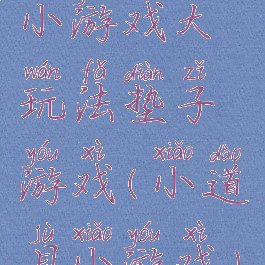 小游戏大
wán fǎ diàn zǐ
玩法垫子
yóu xì xiǎo dào
游戏(小道
jù xiǎo yóu xì
具小游戏)